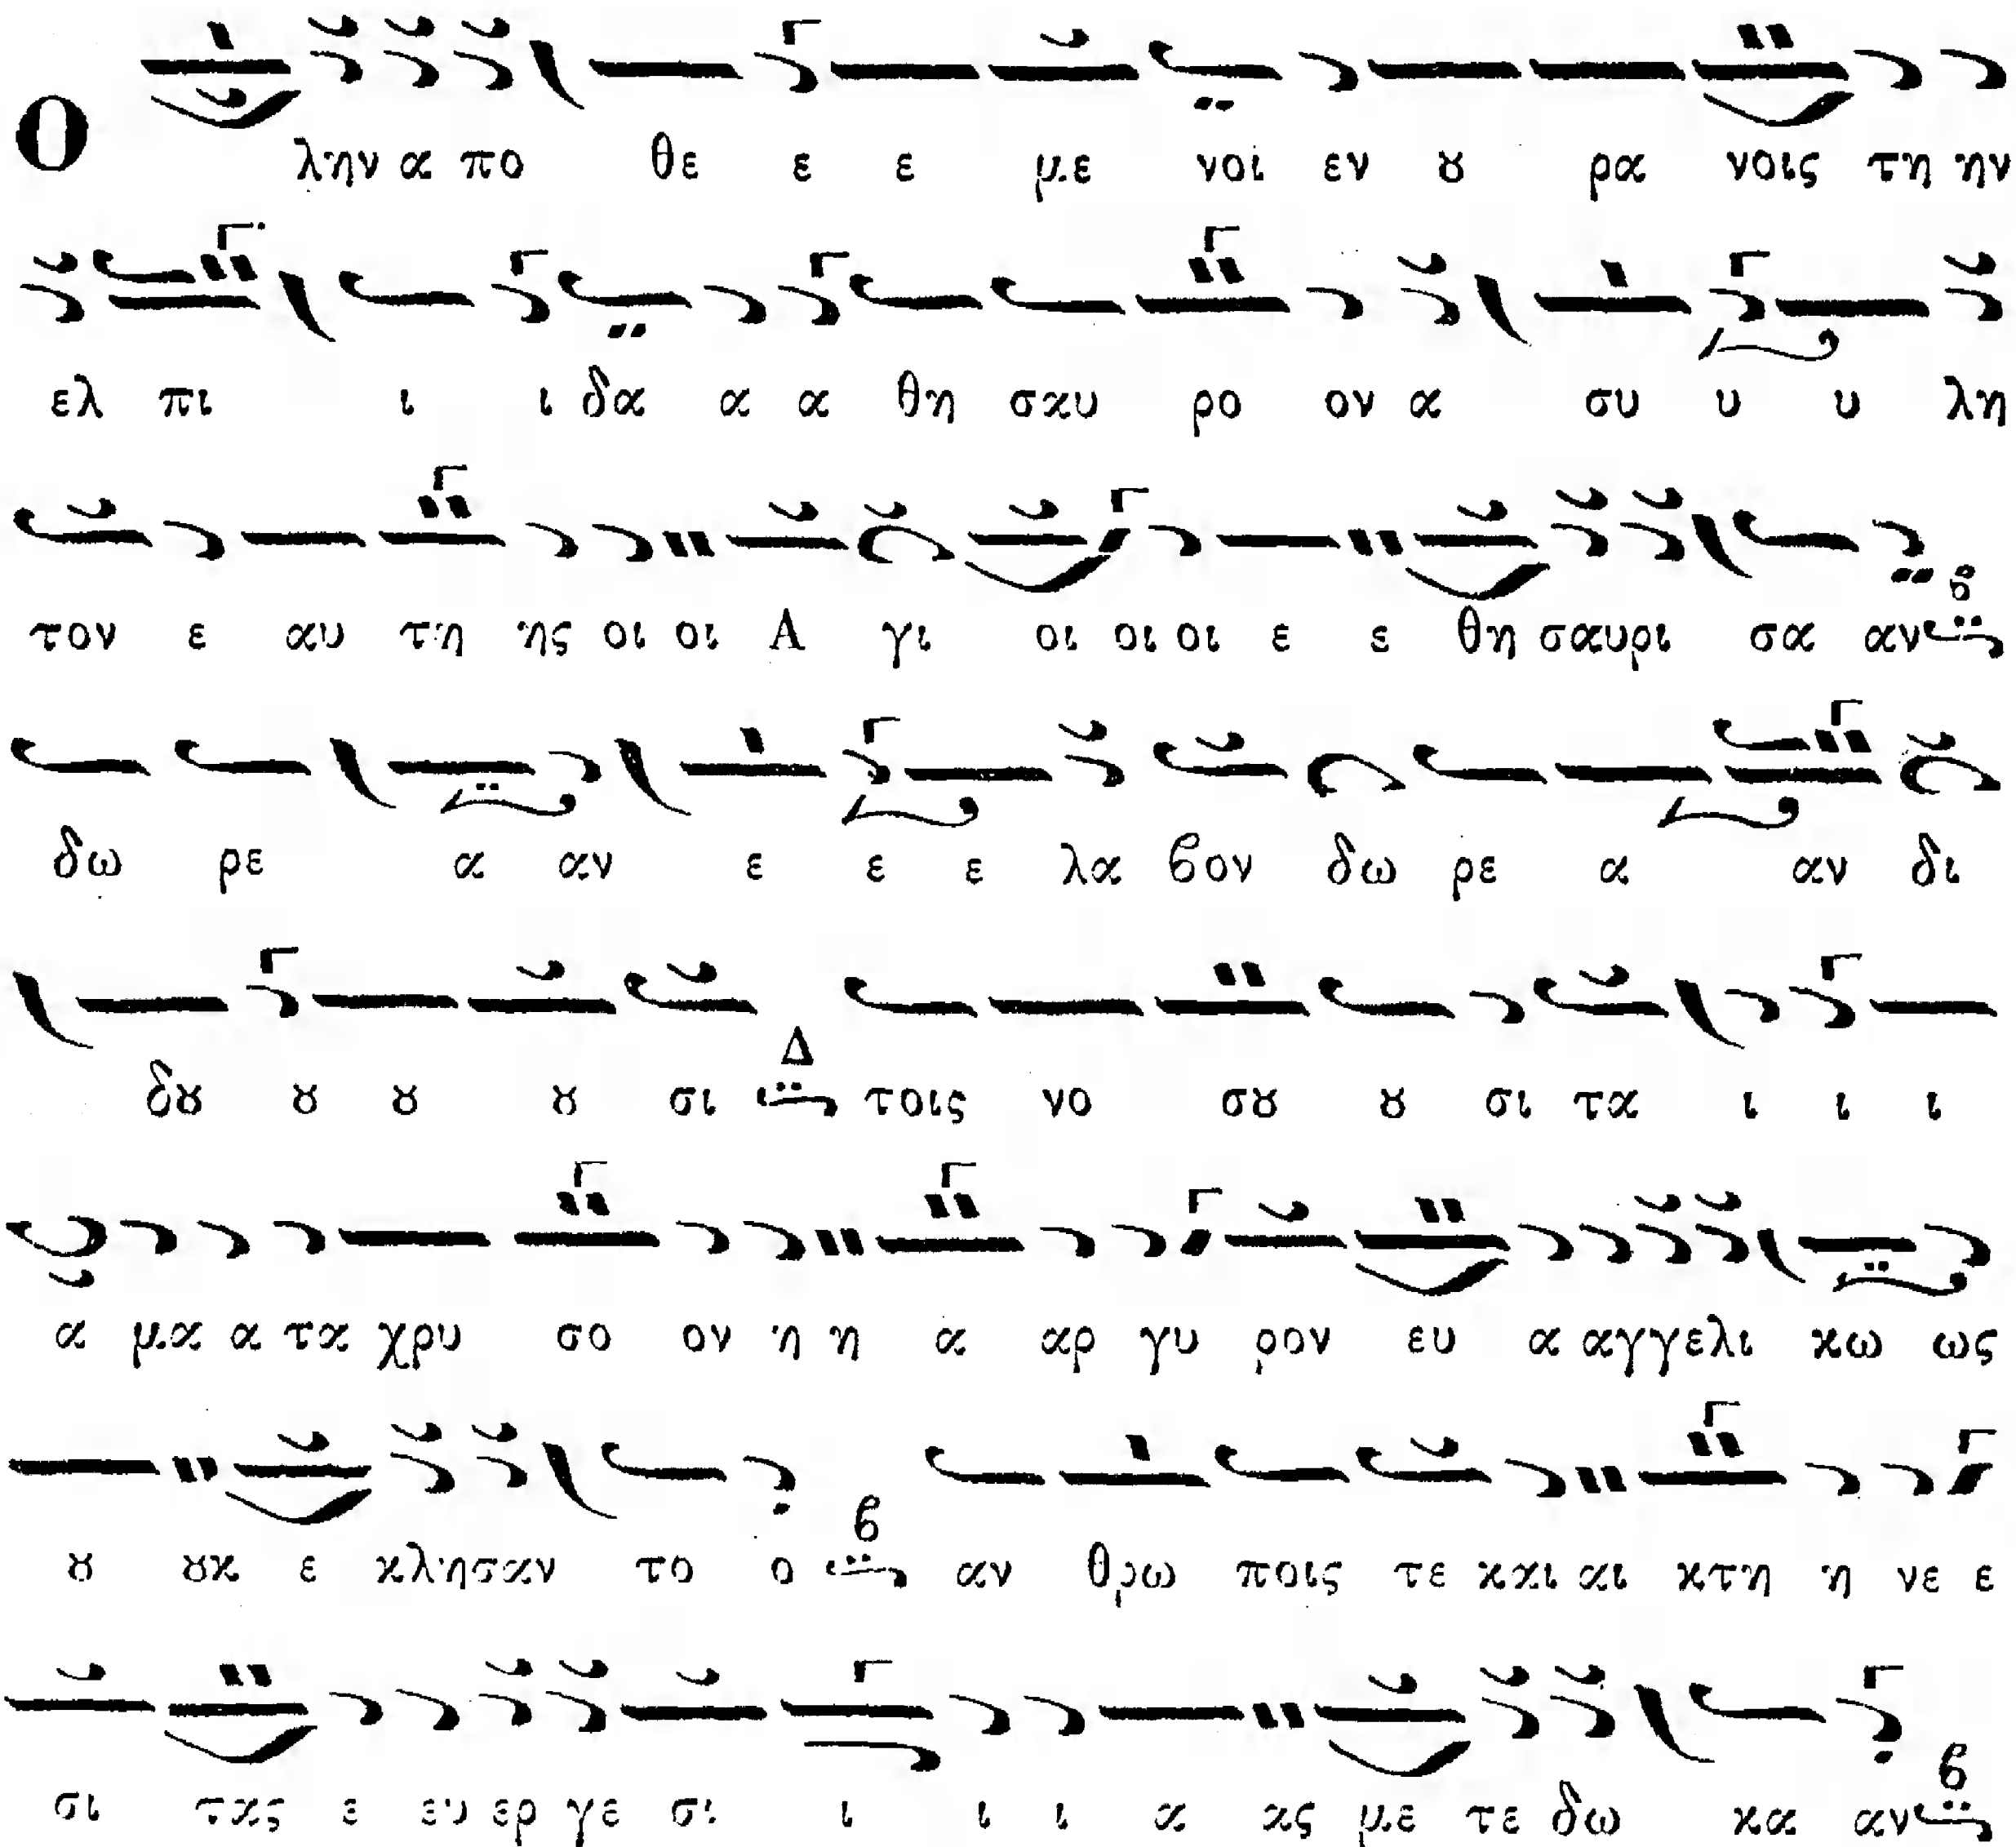 Ο λην α πο θε ε ε με νοι εν ȣ ρα νοις τη ην
ελ πι ι ι δα α α θη σαυ ρο ον α συ υ υ λη
τον ε αυ τη ης οι οι Α γι οι οι οι ε ε θη σαυρι σα αν ϐ
δω ρε α αν ε ε ε λα ϐον δω ρε α αν δι
δȣ ȣ ȣ ȣ σι Δ τοις νο σȣ ȣ σι τα ι ι ι
α μα α τα χρυ σο ον η η α αρ γυ ρον ευ α αγγελι κω ως
ȣ ȣκ ε κλησαν το ο ϐ αν θρω ποις τε και αι κτη η νε ε
σι τας ε ευ ερ γε σι ι ι ι α ας με τε δω κα αν ϐ